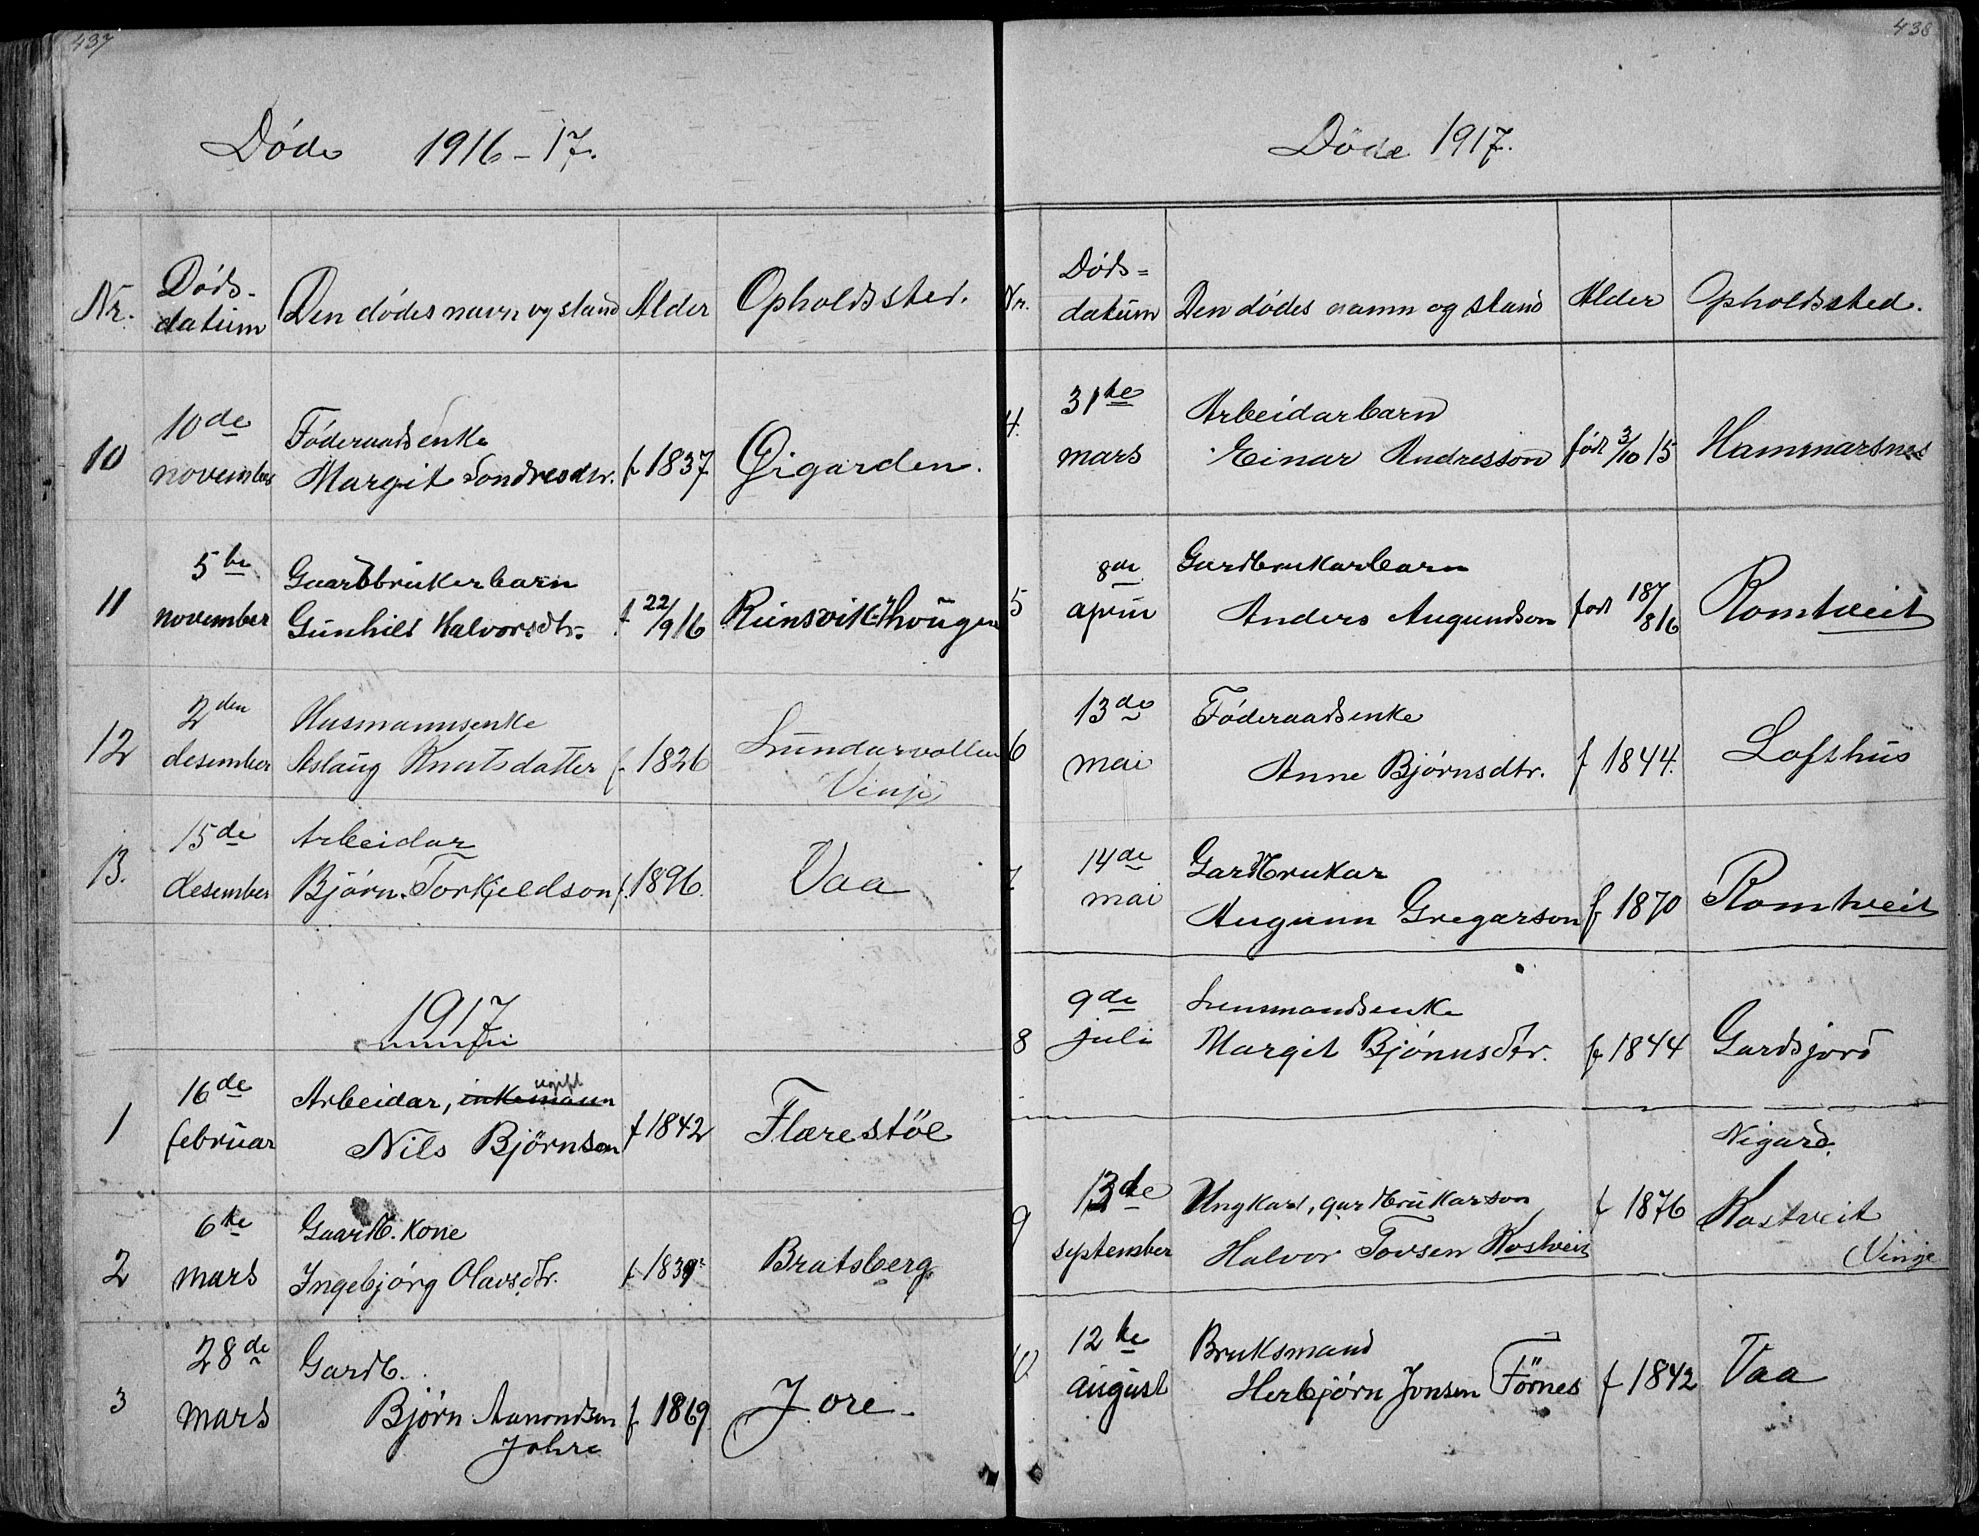 437
Døde 1916-17.
Nr. Døds-datum Den dødes navn og stand Alder Opholdssted.
10 10de november Föderaadsenke
Margit Tondresdtr. f. 1837 Øigarden.
11 5te november Gaardbrukerbarn
Gunhild Halvorsdtr. f 22/9 16 Rünsvik
12 2den desember Husmannsenke
Aslaug Knutsdatter f. 1826 Lundarvollen
Vinje
13. 15de desember Arbeidar
Bjørn Torkjeldson f. 1896. Vaa
1917
1 16de februar Arbeidar, enkemann ugift
Nils Björnson f 1842 Flærestöl
2 6te mars Gaardb. kone
Ingebjörg Olavsdtr. f. 1839 Bratsberg
3 28de mars Gardb.
Björn Aamondsen f. 1869 Jore
Johre
438
Døde 1917.
Nr. Døds-datum Den dødes namn og stand Alder Opholdssted.
4. 31te mars Arbeidarbarn
Einar Andresson født 3/10 15 Hammarsnes
5 8de april Gardbrukarbarn
Anders Augundson født 8/16 Romtveit
6 13de mai Föderaadsenke
Anne Bjørnsdtr. f 1844. Lofthus
7 14de mai Gardbrukar
Augunn Gregarson f 1870 Romtveit
8 9de juli Lensmandsenke
Margit Bjönnsdtr. f. 1844 Gardsjord
Nigard.
9 13de september Ungkarl, gardbrukarson f 1876 Kostveit
Halvor Tovsen Kostveit Vinje
10 12te august Bruksmand
Herbjörn Jonsen Förnes f 1842 Vaa